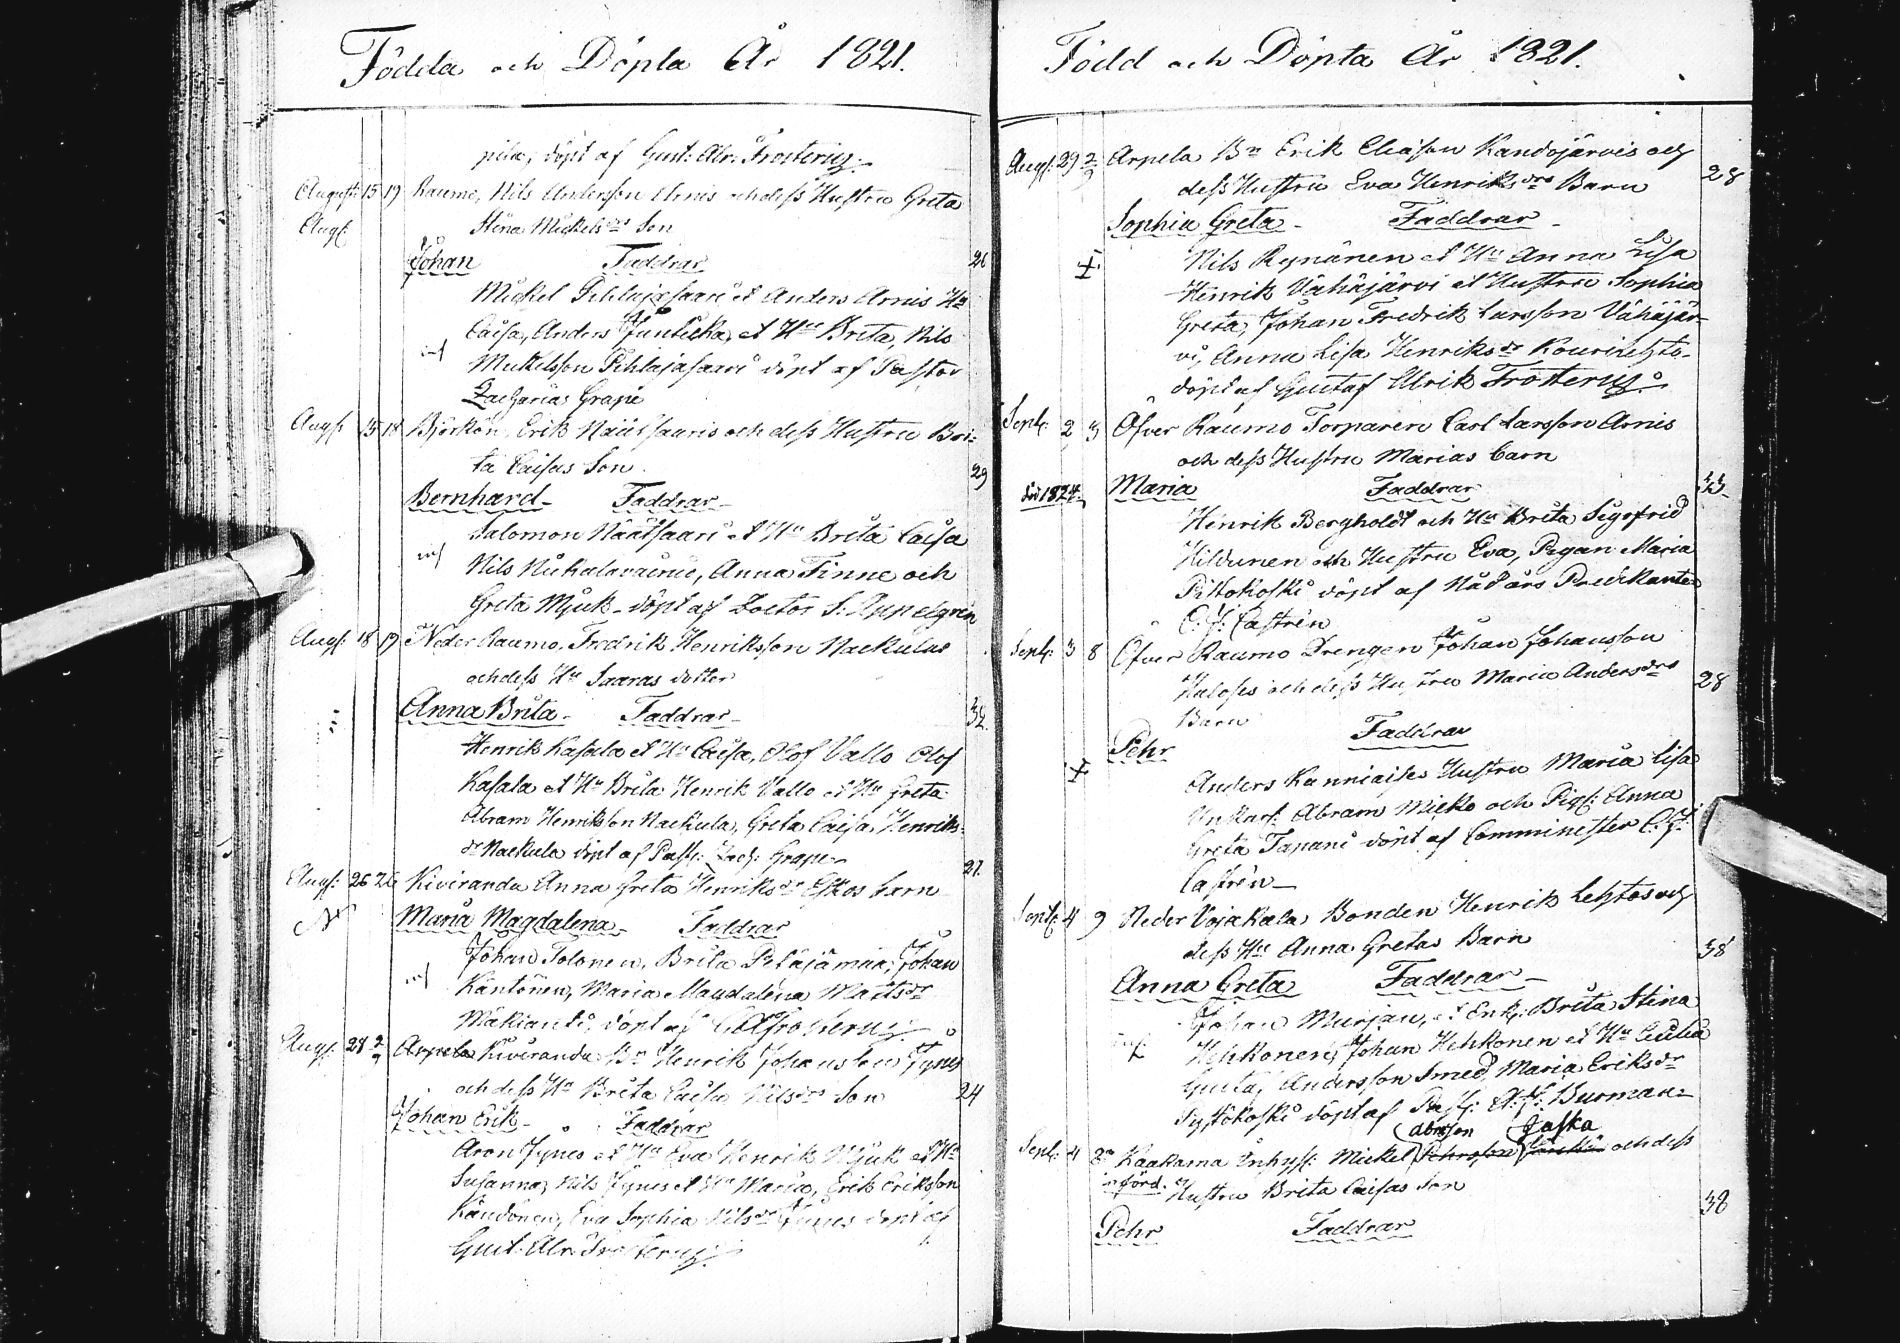 Födda och Döpta År 1821.
pila, döpt af Gust: Ulr: Frosterus.
August: 15 19 Raumo, Nils Andersson Arnis och dess Hustru Greta
Aug: Stina Mickelsdrs Son
Johan Faddrar 26
Mickel Pihlajasaari et Anders Arnis Hu
Caisa, Anders Juntikka, et Hu Brita, Nils
Mickelsson Pihlajasaari döpt af Pastor
Zacharias Grape
Aug: 15 18 Björkön, Erik Näätsaaris och dess Hustru Bri-
ta Caisas Son 29
Bernhard Faddrar
Salomon Näätsaari et Hu Brita Caisa
Nils Nikalavainio, Anna Finne och
Greta Mjuk döpt af Doctor S: Appelgren
Aug: 18 19 Neder Raumo, Fredrik Henriksson Naekulas
och dess Hu Saaras dotter
Anna Brita Faddrar 32
Henrik Kasala et Hu Caisa, Olof Vallo Olof
Kasala et Hu Brita Henrik Vallo et Hu Greta
Abram Henriksson Naekula, Greta Caisa Henriks-
dr Naekula döpt af Past: Zach: Grape 27.
Aug: 25 26 Kiviranda Anna Greta Henriksdr Eskos barn
Maria Magdalena Faddrar
Johan Tolonen, Brita Petäjämaa, Johan
Käntönen, Maria Magdalena Mattsdr
döpt af Frosterus
Aug: 28 2/9 Arpela Kiviranda Bn Henrik Johansson Fynes
och dess Hu Brita Caisa Nilsdrs Son 24
Johan Erik Faddrar
Aron Fynes et Hu Eva Henrik Mjuk et Hu
Susanna, Nils Fynes et Hu Maria, Erik Eriksson
Kandonen, Eva Sophia Nilsdr Fynes döpt af
Gust: Ulr: Frosterus.
Född och Döpta År 1821.
Aug: 29 2/9 Arpela Bn Erik Eliasson Kandojärvis och
dess Hustru Eva Henriksdrs Barn 28
Sophia Greta Faddrar
Nils Rynänen et Hu Anna Lisa
Henrik Vähäjärvi et Hustru Sophia
Greta, Johan Fredrik Larsson Vähäjär-
vi, Anna Lisa Henriksdr Kourilehto
döpt af Gustaf Ulrik Frosterus.
Sept: 2 3 Öfver Raumo Torparen Carl Larsson Arnis
och dess Hustru Marias barn
död 1824. Maria Faddrar 33.
Henrik Bergholdt och Hu Brita Sigfrid
Hildunen och Hustru Eva, Pigan Maria
Pittokoski döpt af Nådårs Predikanten
C: J: Castrén
Sept: 3 8 Öfver Raumo Drengen Johan Johansson
Haloses och dess Hustru Maria Andersdrs
Barn 28
Pehr Faddrar
Anders Kanniaises Hustru Maria Lisa
Unkari Abram Micko och Pig: Anna
Greta Tapani döpt af Comminister C: J:
Castrén
Sept: 4 9 Neder Vojakala Bonden Henrik Lehtos och
dess Hu Anna Gretas Barn 38
Anna Greta Faddrar
Johan Murjan, et Enk: Brita Stina
Hehkonen, Johan Hehkonen et Hu Cecilia
Gustaf Andersson Smed, Maria Eriksdr
döpt af Past: Burman
Abrsson Jaska
Sept: 4 8 Kaakama Inhys: Mickel Pehrsson och dess
införd. Hustru Brita Caisas Son 38
Pehr Faddrar